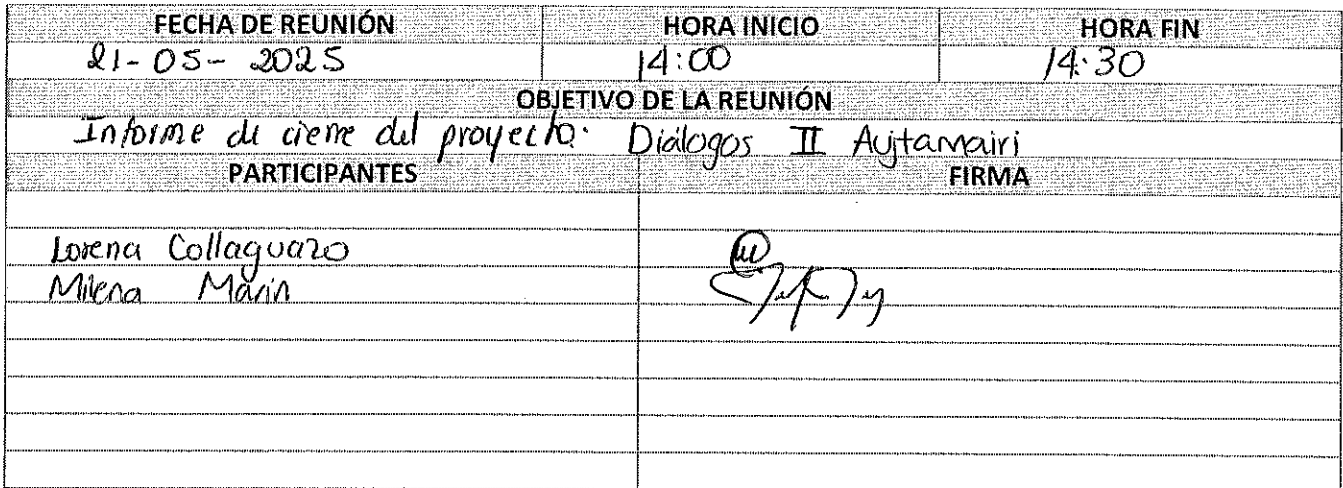 FECHA DE REUNIÓN HORA INICIO HORA FIN
21-05-2025 14:00 14:30
OBJETIVO DE LA REUNIÓN
Informe de cierre del proyecto: Diálogos II
PARTICIPANTES FIRMA
Lorena Collaguazo
Milena Marin